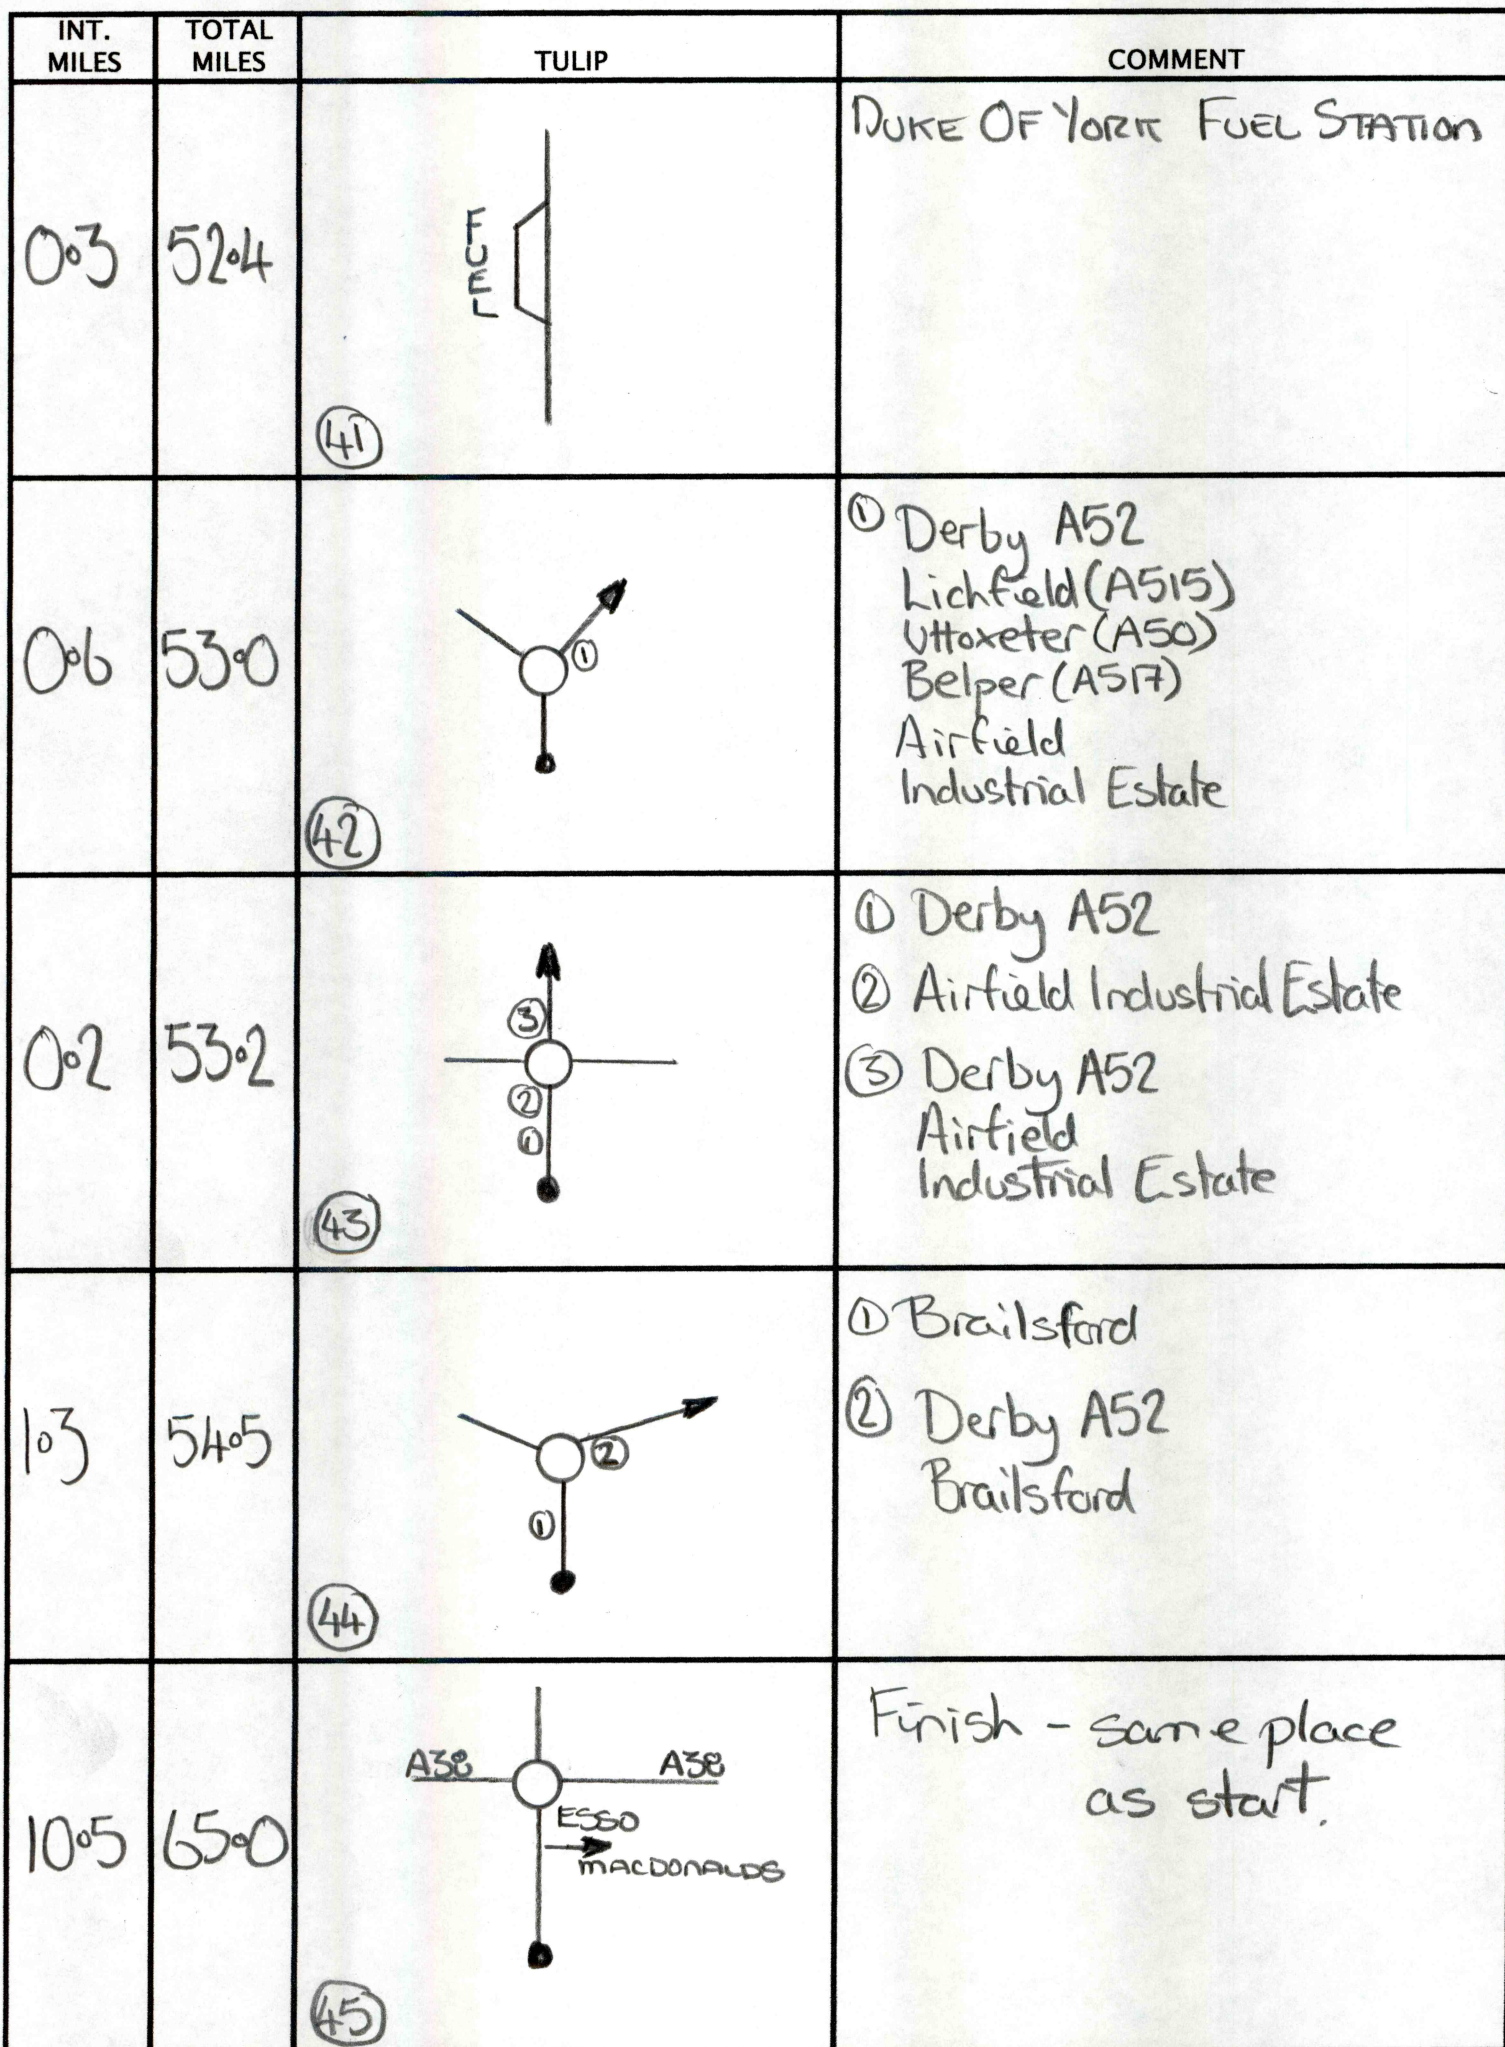 INT. MILES
TOTAL MILES
TULIP
COMMENT
0.3
52.4
FUEL
41
DUKE OF YORK FUEL STATION
0.6
53.0
①
42
① Derby A52
Lichfield (A515)
Uttoxeter (A50)
Belper (A517)
Airfield
Industrial Estate
0.2
53.2
③
②
①
43
① Derby A52
② Airfield Industrial Estate
③ Derby A52
Airfield
Industrial Estate
1.3
54.5
②
①
44
① Brailsford
② Derby A52
Brailsford
10.5
65.0
A38
A38
ESSO
MACDONALDS
45
Finish - same place
as start.